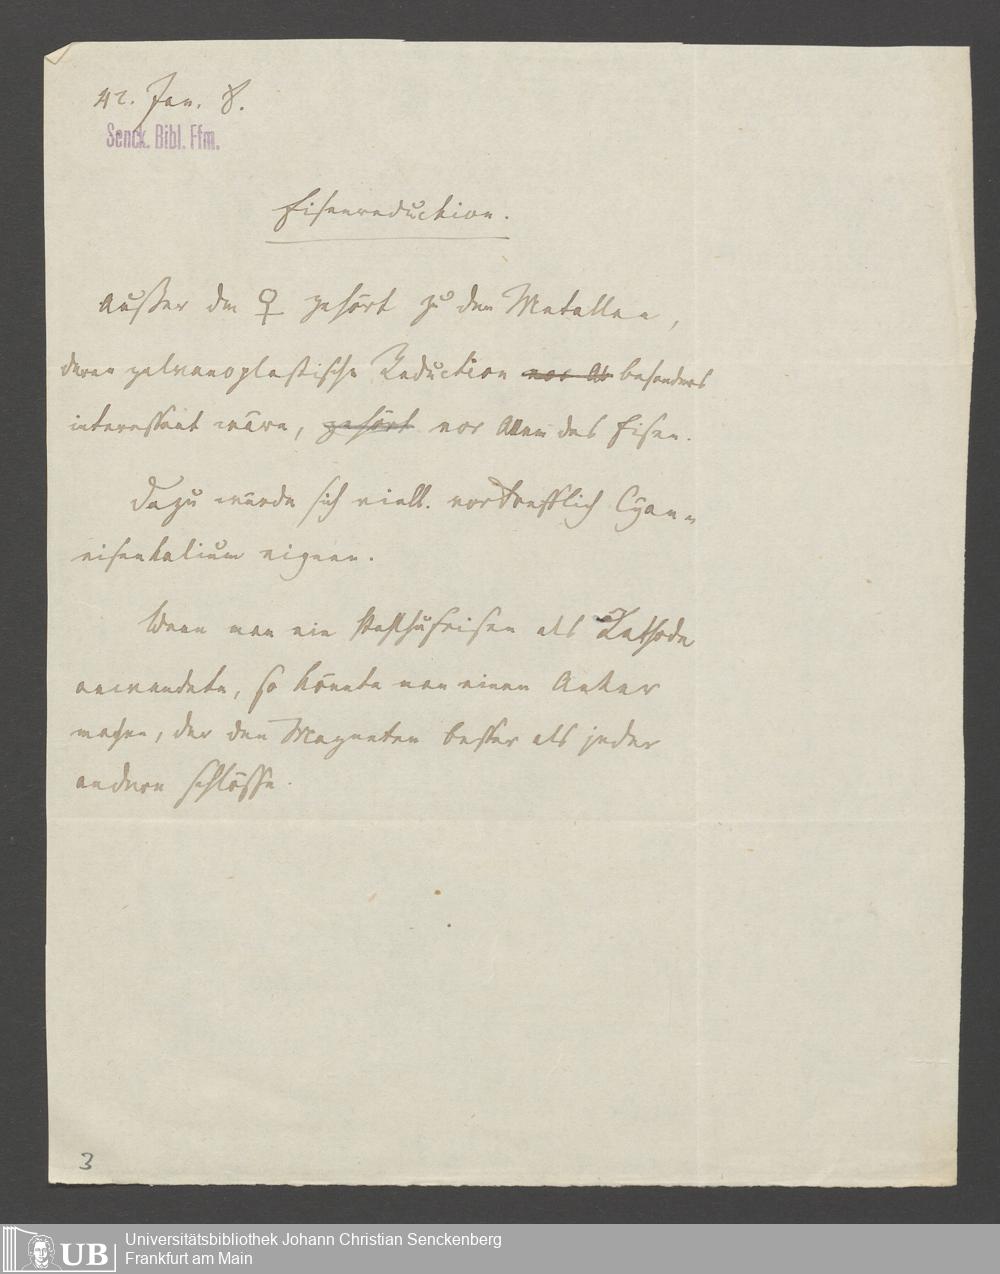 42. Jan. 8.
Senck. Bibl. Ffm.
Eisenreduction.
Außer dem ♀ gehört zu den Metallen,
deren galvanoplastische Reduction vor besonders
interessant wäre, gehört vor Allem das Eisen.
Dazu würde sich viell. vortrefflich Cyan-
eisenkalium eignen.
Wenn man ein Stahlhufeisen als Kathode
anwendete, so könnte man einen Anker
machen, der den Magneten besser als jeder
andere schlösse.
3
UB
Universitätsbibliothek Johann Christian Senckenberg
Frankfurt am Main